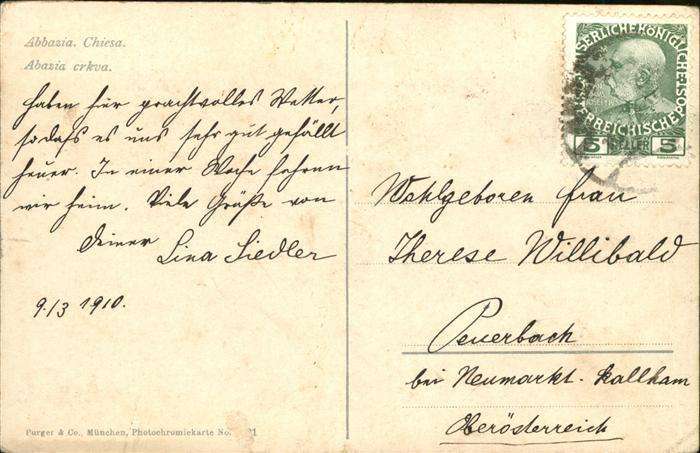 Abbazia. Chiesa.
Abazia crkva.
haben hier prachtvolles Wetter,
sodass es uns sehr gut gefällt
heuer. In einer Woche fahren
wir heim. Viele Grüße von
Deiner Lina Siedler
9./3 1910.
Purger & Co., München, Photochromiekarte No.
SERLICHE KÖNIGLICHE ÖS
REICHISCHE
5 HELLER 5
Wohlgeboren Frau
Therese Willibald
Peuerbach
bei Neumarkt-Kallham
Oberösterreich